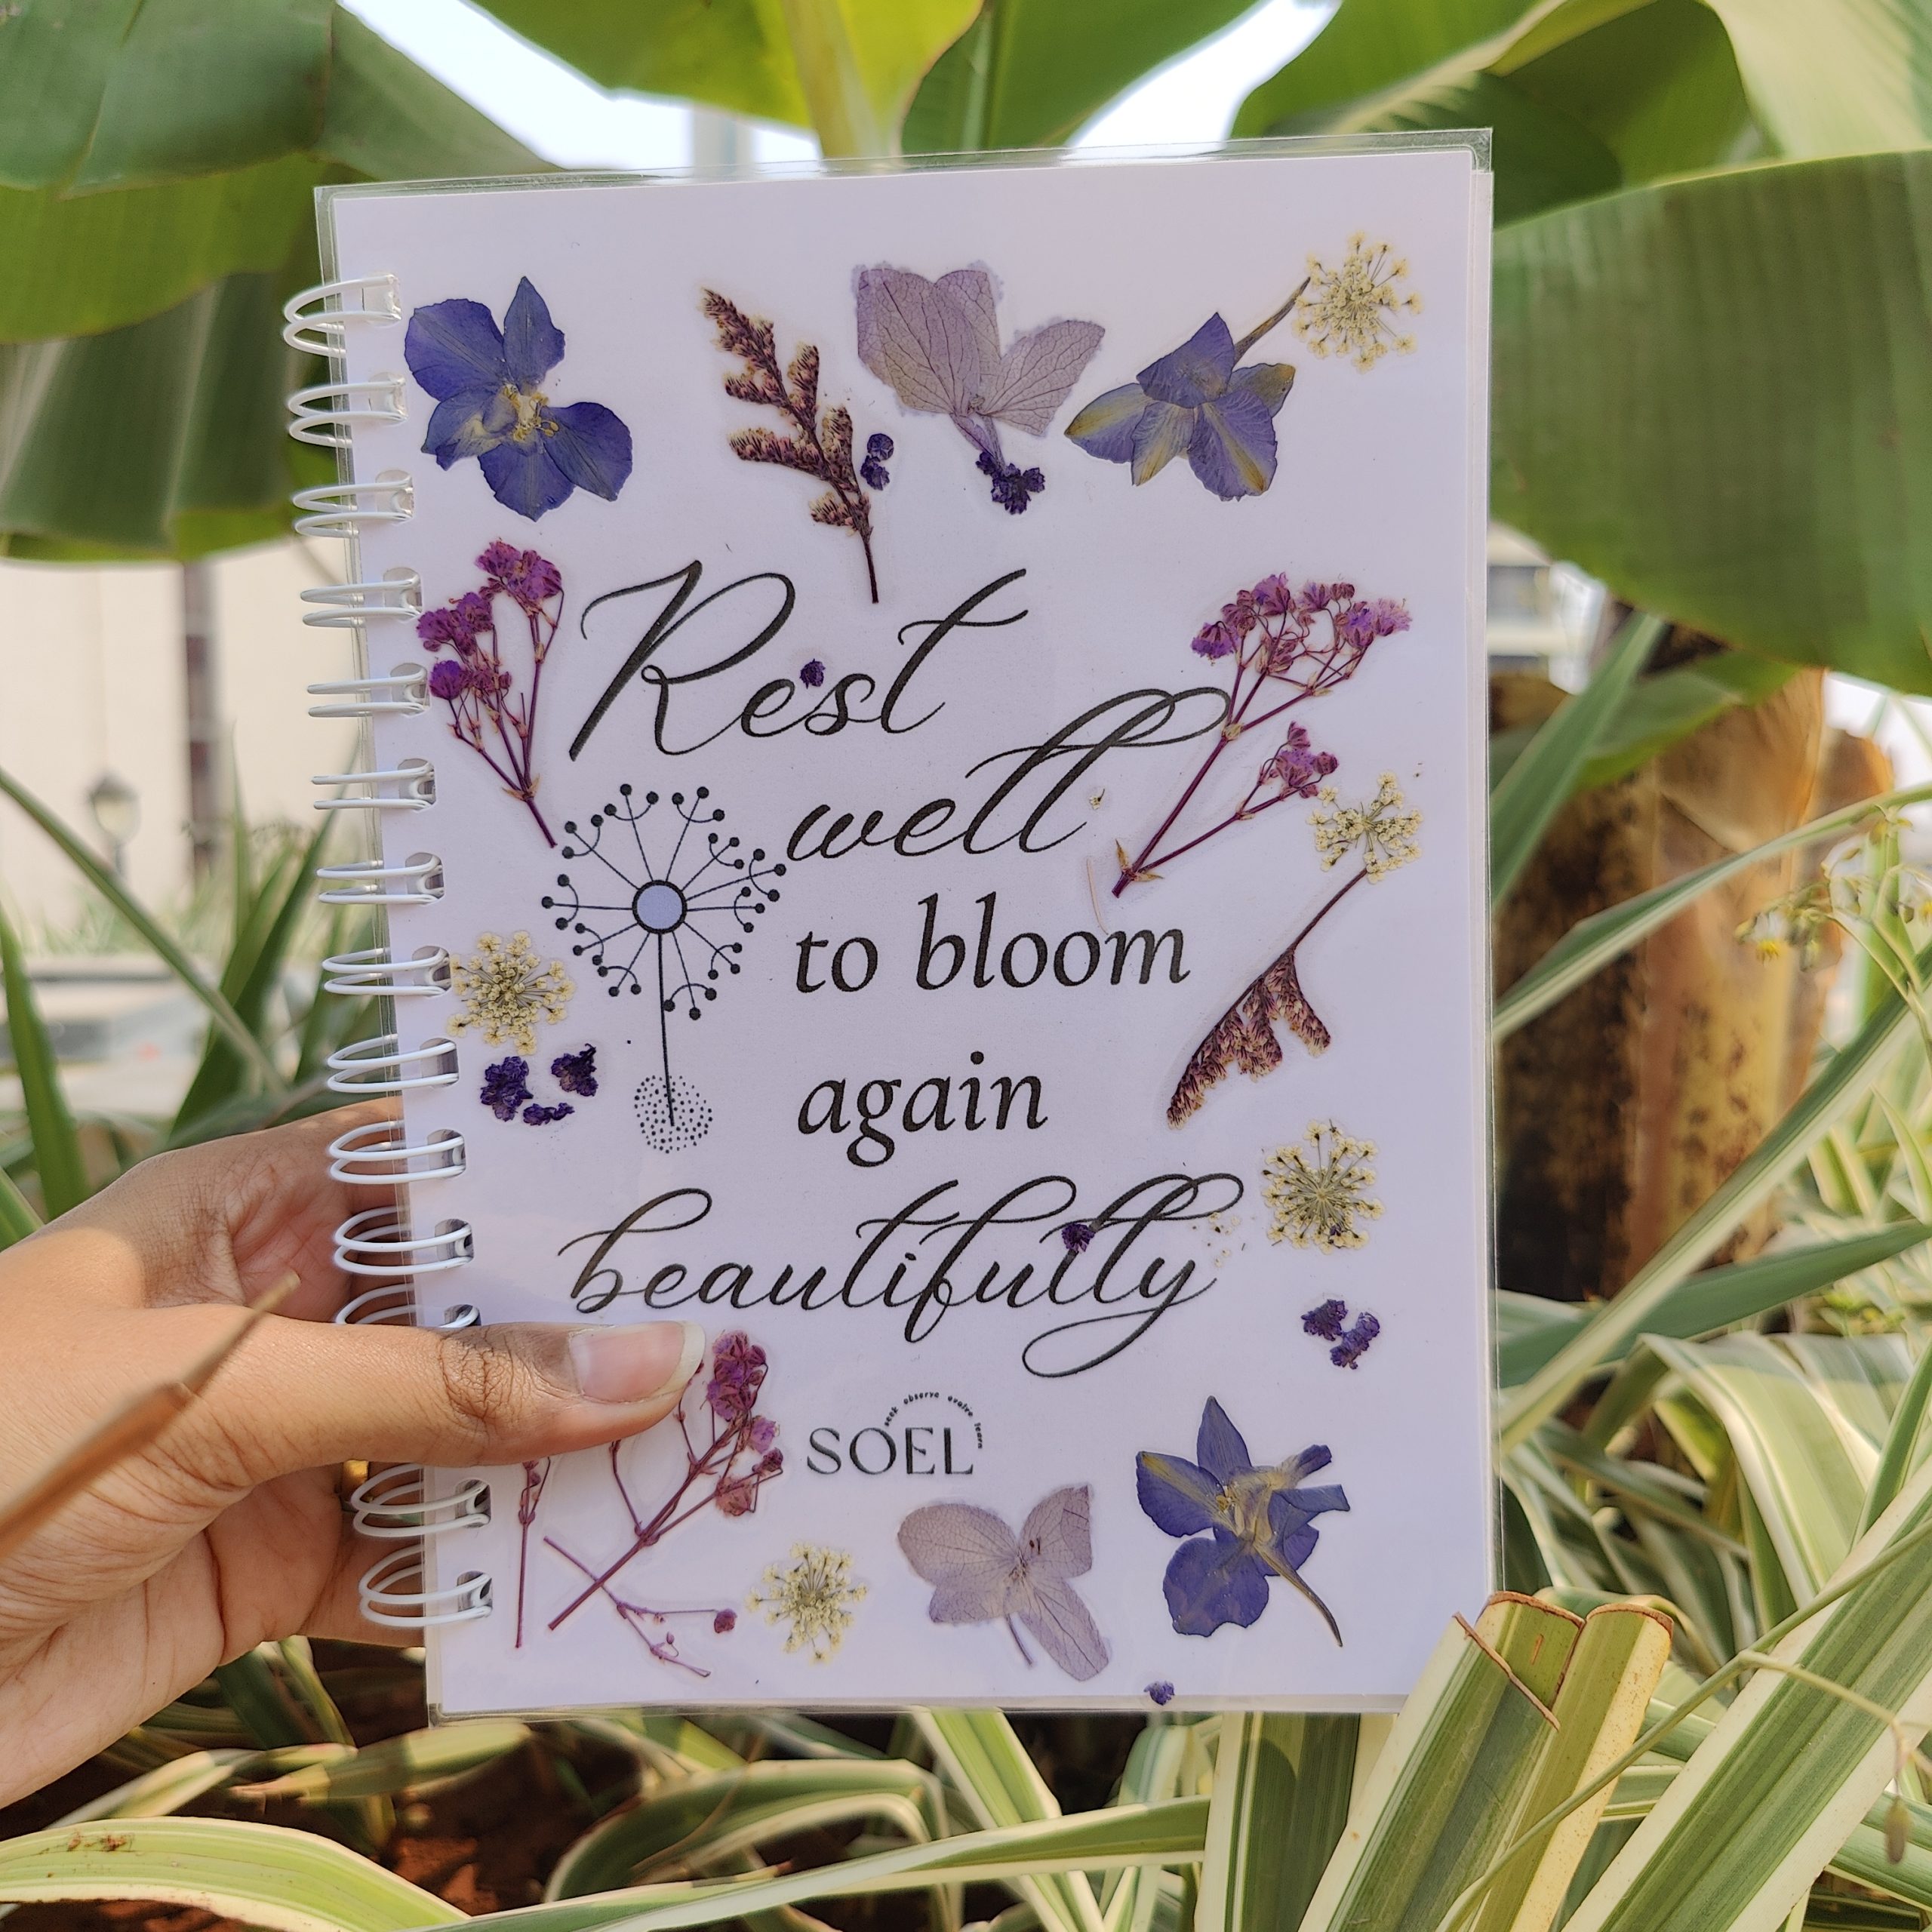 Rest
well
to bloom
again
beautifully
seek observe evolve learn
SOEL